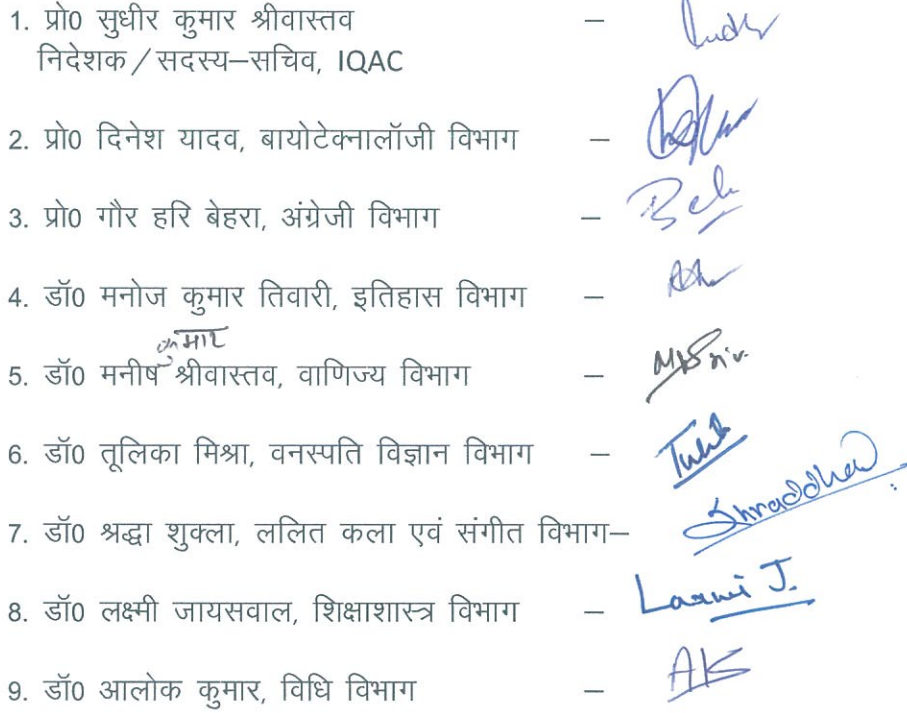 1. प्रो0 सुधीर कुमार श्रीवास्तव –
निदेशक/सदस्य–सचिव, IQAC
2. प्रो0 दिनेश यादव, बायोटेक्नालॉजी विभाग –
3. प्रो0 गौर हरि बेहरा, अंग्रेजी विभाग –
4. डॉ0 मनोज कुमार तिवारी, इतिहास विभाग –
कुमार
5. डॉ0 मनीष श्रीवास्तव, वाणिज्य विभाग –
6. डॉ0 तूलिका मिश्रा, वनस्पति विज्ञान विभाग –
7. डॉ0 श्रद्धा शुक्ला, ललित कला एवं संगीत विभाग– Shraddha
8. डॉ0 लक्ष्मी जायसवाल, शिक्षाशास्त्र विभाग – Laxmi J.
9. डॉ0 आलोक कुमार, विधि विभाग – AK